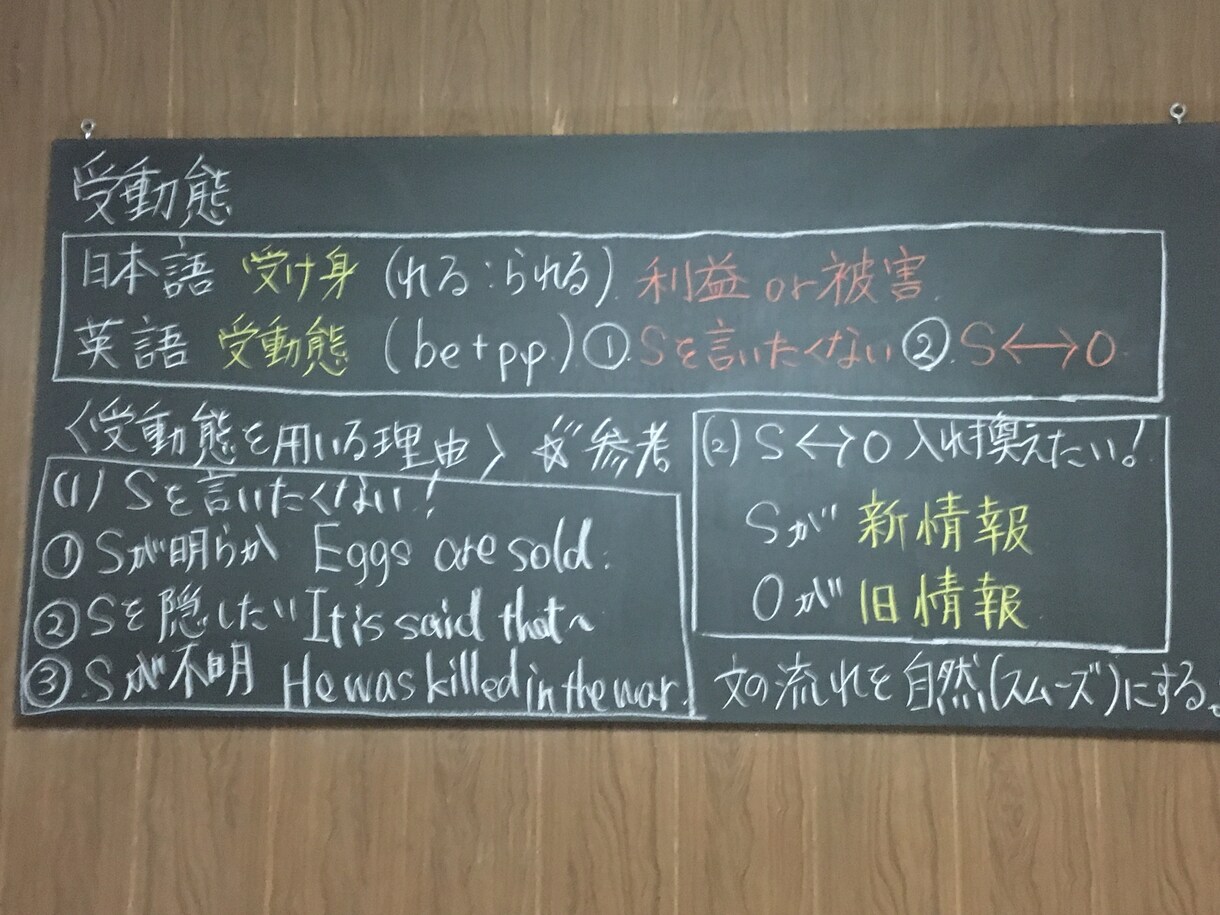 受動態
日本語 受け身 (れる:られる) 利益 or 被害
英語 受動態 (be+pp.) ①.Sを言いたくない ②.S↔O
〈受動態を用いる理由〉 ☆参考
(1) Sを言いたくない!
① Sが明らか Eggs are sold.
② Sを隠したい It is said that~
③ Sが不明 He was killed in the war.
(2) S↔O 入れ換えたい!
Sが 新情報
Oが 旧情報
文の流れを自然(スムーズ)にする。